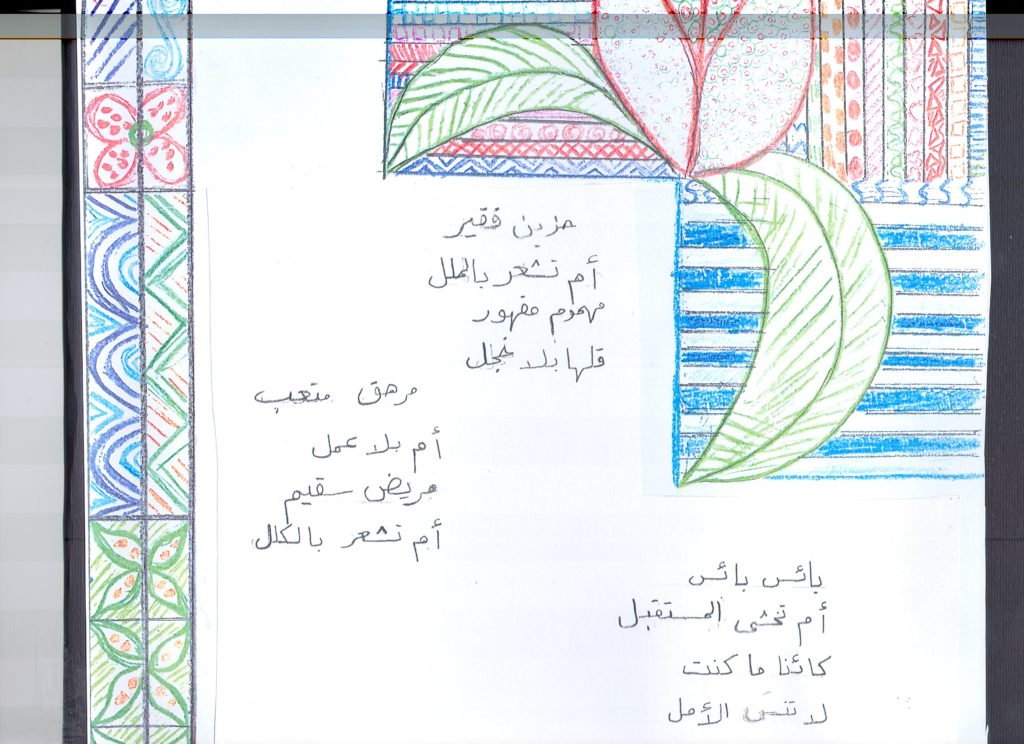 حزين فقير
أم تشعر بالملل
مهموم مقهور
قلها بلا خجل
مرهق متعب
أم بلا عمل
مريض سقيم
أم تشعر بالكلل
بائس بائس
أم تخشى المستقبل
كائنا ما كنت
لا تنس الأمل